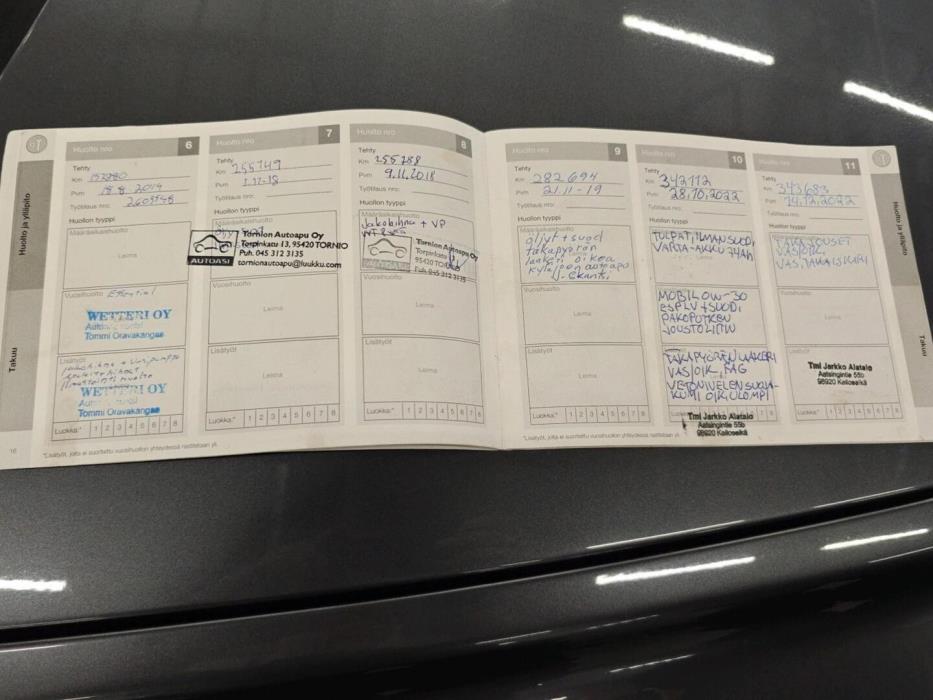 Huolto ja ylläpito
Takuu
16
Huolto nro 6
Tehty
Km
Pvm 18.8.2014
Työtilaus nro:
Huollon tyyppi
Määräaikaishuolto
Leima
Vuosihuolto Essential
WETTERI OY
Tommi Oravakangas
Lisätyöt
WETTERI OY
Tommi Oravakangas
Luokka:* 1 2 3 4 5 6 7 8
*Lisätyöt, jotka ei suoritettu vuosihuollon yhteydessä rastitetaan yli.
Huolto nro 7
Tehty
Km 255749
Pvm
Työtilaus nro:
Huollon tyyppi
Määräaikaishuolto
Tornion Autoapu Oy
Torpinkatu 13, 95420 TORNIO
Puh. 045 312 3135
tornionautoapu@luukku.com
AUTOASI
Vuosihuolto
Leima
Lisätyöt
Leima
Luokka:* 1 2 3 4 5 6 7 8
Huolto nro 8
Tehty
Km 255788
Pvm 9.11.2018
Työtilaus nro:
Huollon tyyppi
Määräaikaishuolto
Jakohihna + VP
Tornion Autoapu Oy
Torpinkatu
95420
Puh. 045 312 3135
Vuosihuolto
Leima
Lisätyöt
Leima
Luokka:* 1 2 3 4 5 6 7 8
Huolto nro 9
Tehty
Km 282694
Pvm 21.11-19
Työtilaus nro:
Huollon tyyppi
Määräaikaishuolto
öljyt + suod
takapyörän
laakeri oikea
kylmpön autoapu
Vuosihuolto
Leima
Lisätyöt
Leima
Luokka:* 1 2 3 4 5 6 7 8
*Lisätyöt, jotka ei suoritettu vuosihuollon yhteydessä rastitetaan yli.
Huolto nro 10
Tehty
Km 342112
Pvm 28.10.2022
Työtilaus nro:
Huollon tyyppi
TULPAT, ILMANSUOD,
VARTA-AKKU 74Ah
MOBIL 0W-30
ESP LV + SUOD,
PAKOPUTKEN
JOUSTOLIITIN
TAKAPYÖREN LAAKERI
VAS/OIK, FAG
VETONIVELEN SUOJA-
KUMI OIK, ULOMPI
Tmi Jarkko Alatalo
Aatsingintie 55b
98920 Kelloselkä
Huolto nro 11
Tehty
Km 343683
Pvm 14.12.2022
Työtilaus nro:
Huollon tyyppi
TAKAJOUSET
VAS/OIK,
Vuosihuolto
Leima
Lisätyöt
Tmi Jarkko Alatalo
Aatsingintie 55b
98920 Kelloselkä
Luokka:* 1 2 3 4 5 6 7 8
Huolto ja ylläpito
Takuu